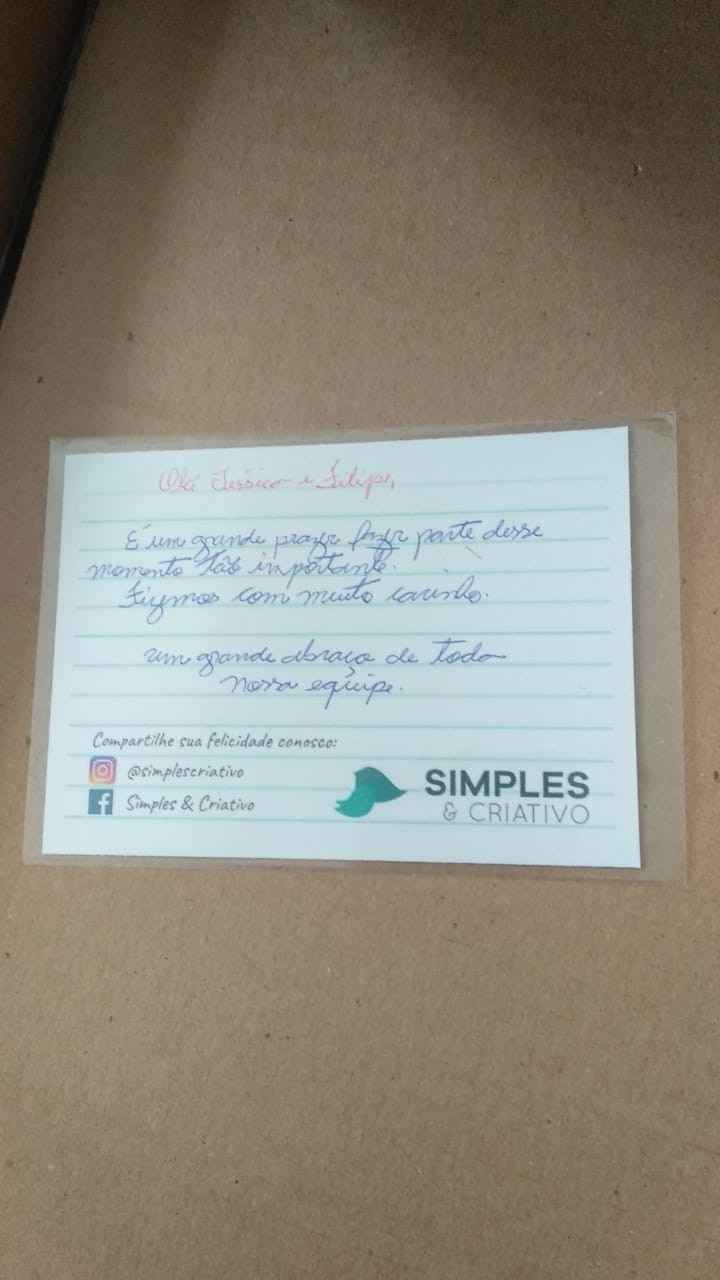 Olá Jéssica e Filipe,
É um grande prazer fazer parte desse
momento tão importante.
Fizemos com muito carinho.
um grande abraço de toda
nossa equipe.
Compartilhe sua felicidade conosco:
@simplescriativo
Simples & Criativo
SIMPLES
& CRIATIVO